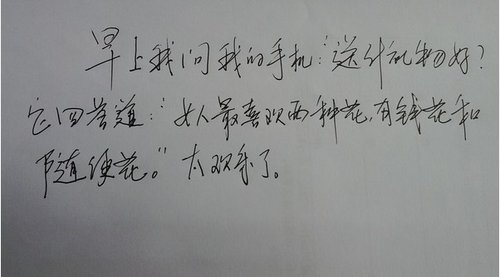 早上我问我的手机:“送什礼物好?
它回答道:“女人最喜欢两种花,有钱花和
随便花。”太欢乐了。